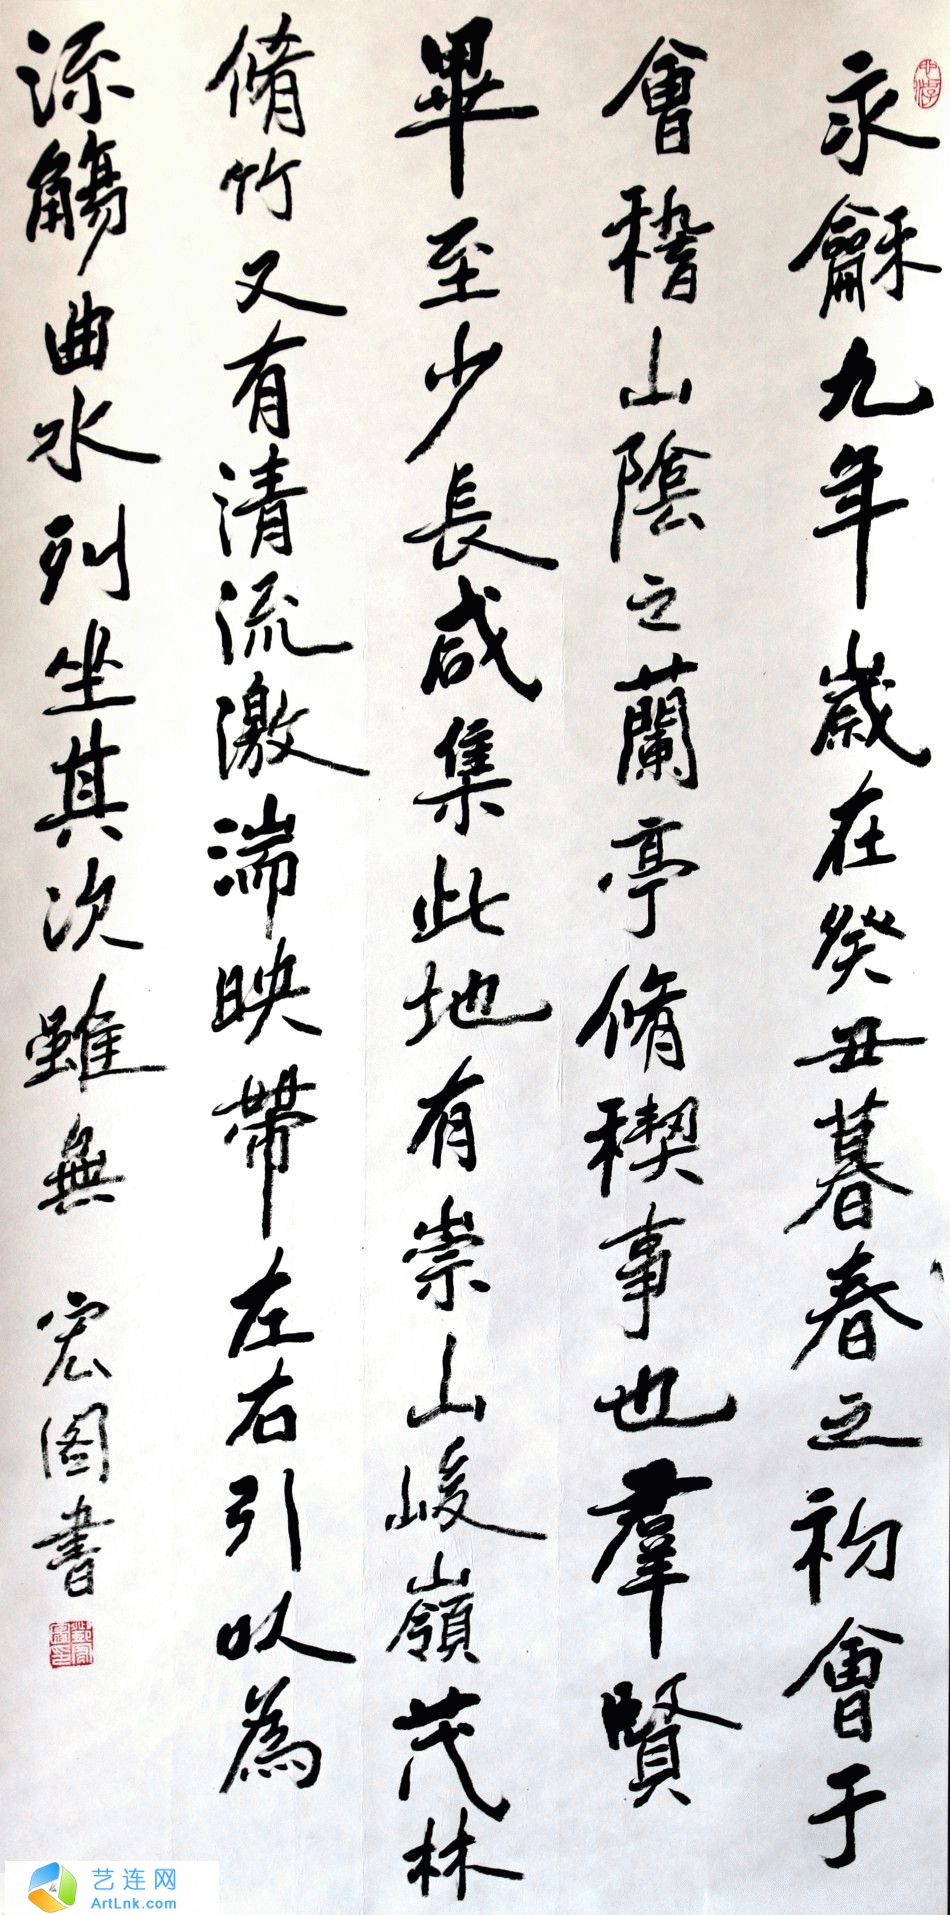 永龢九年歲在癸丑暮春之初會于
會稽山陰之蘭亭脩稧事也羣賢
畢至少長咸集此地有崇山峻嶺茂林
脩竹又有清流激湍映帶左右引以為
流觴曲水列坐其次雖無 宏图書
艺连网
ArtLnk.com